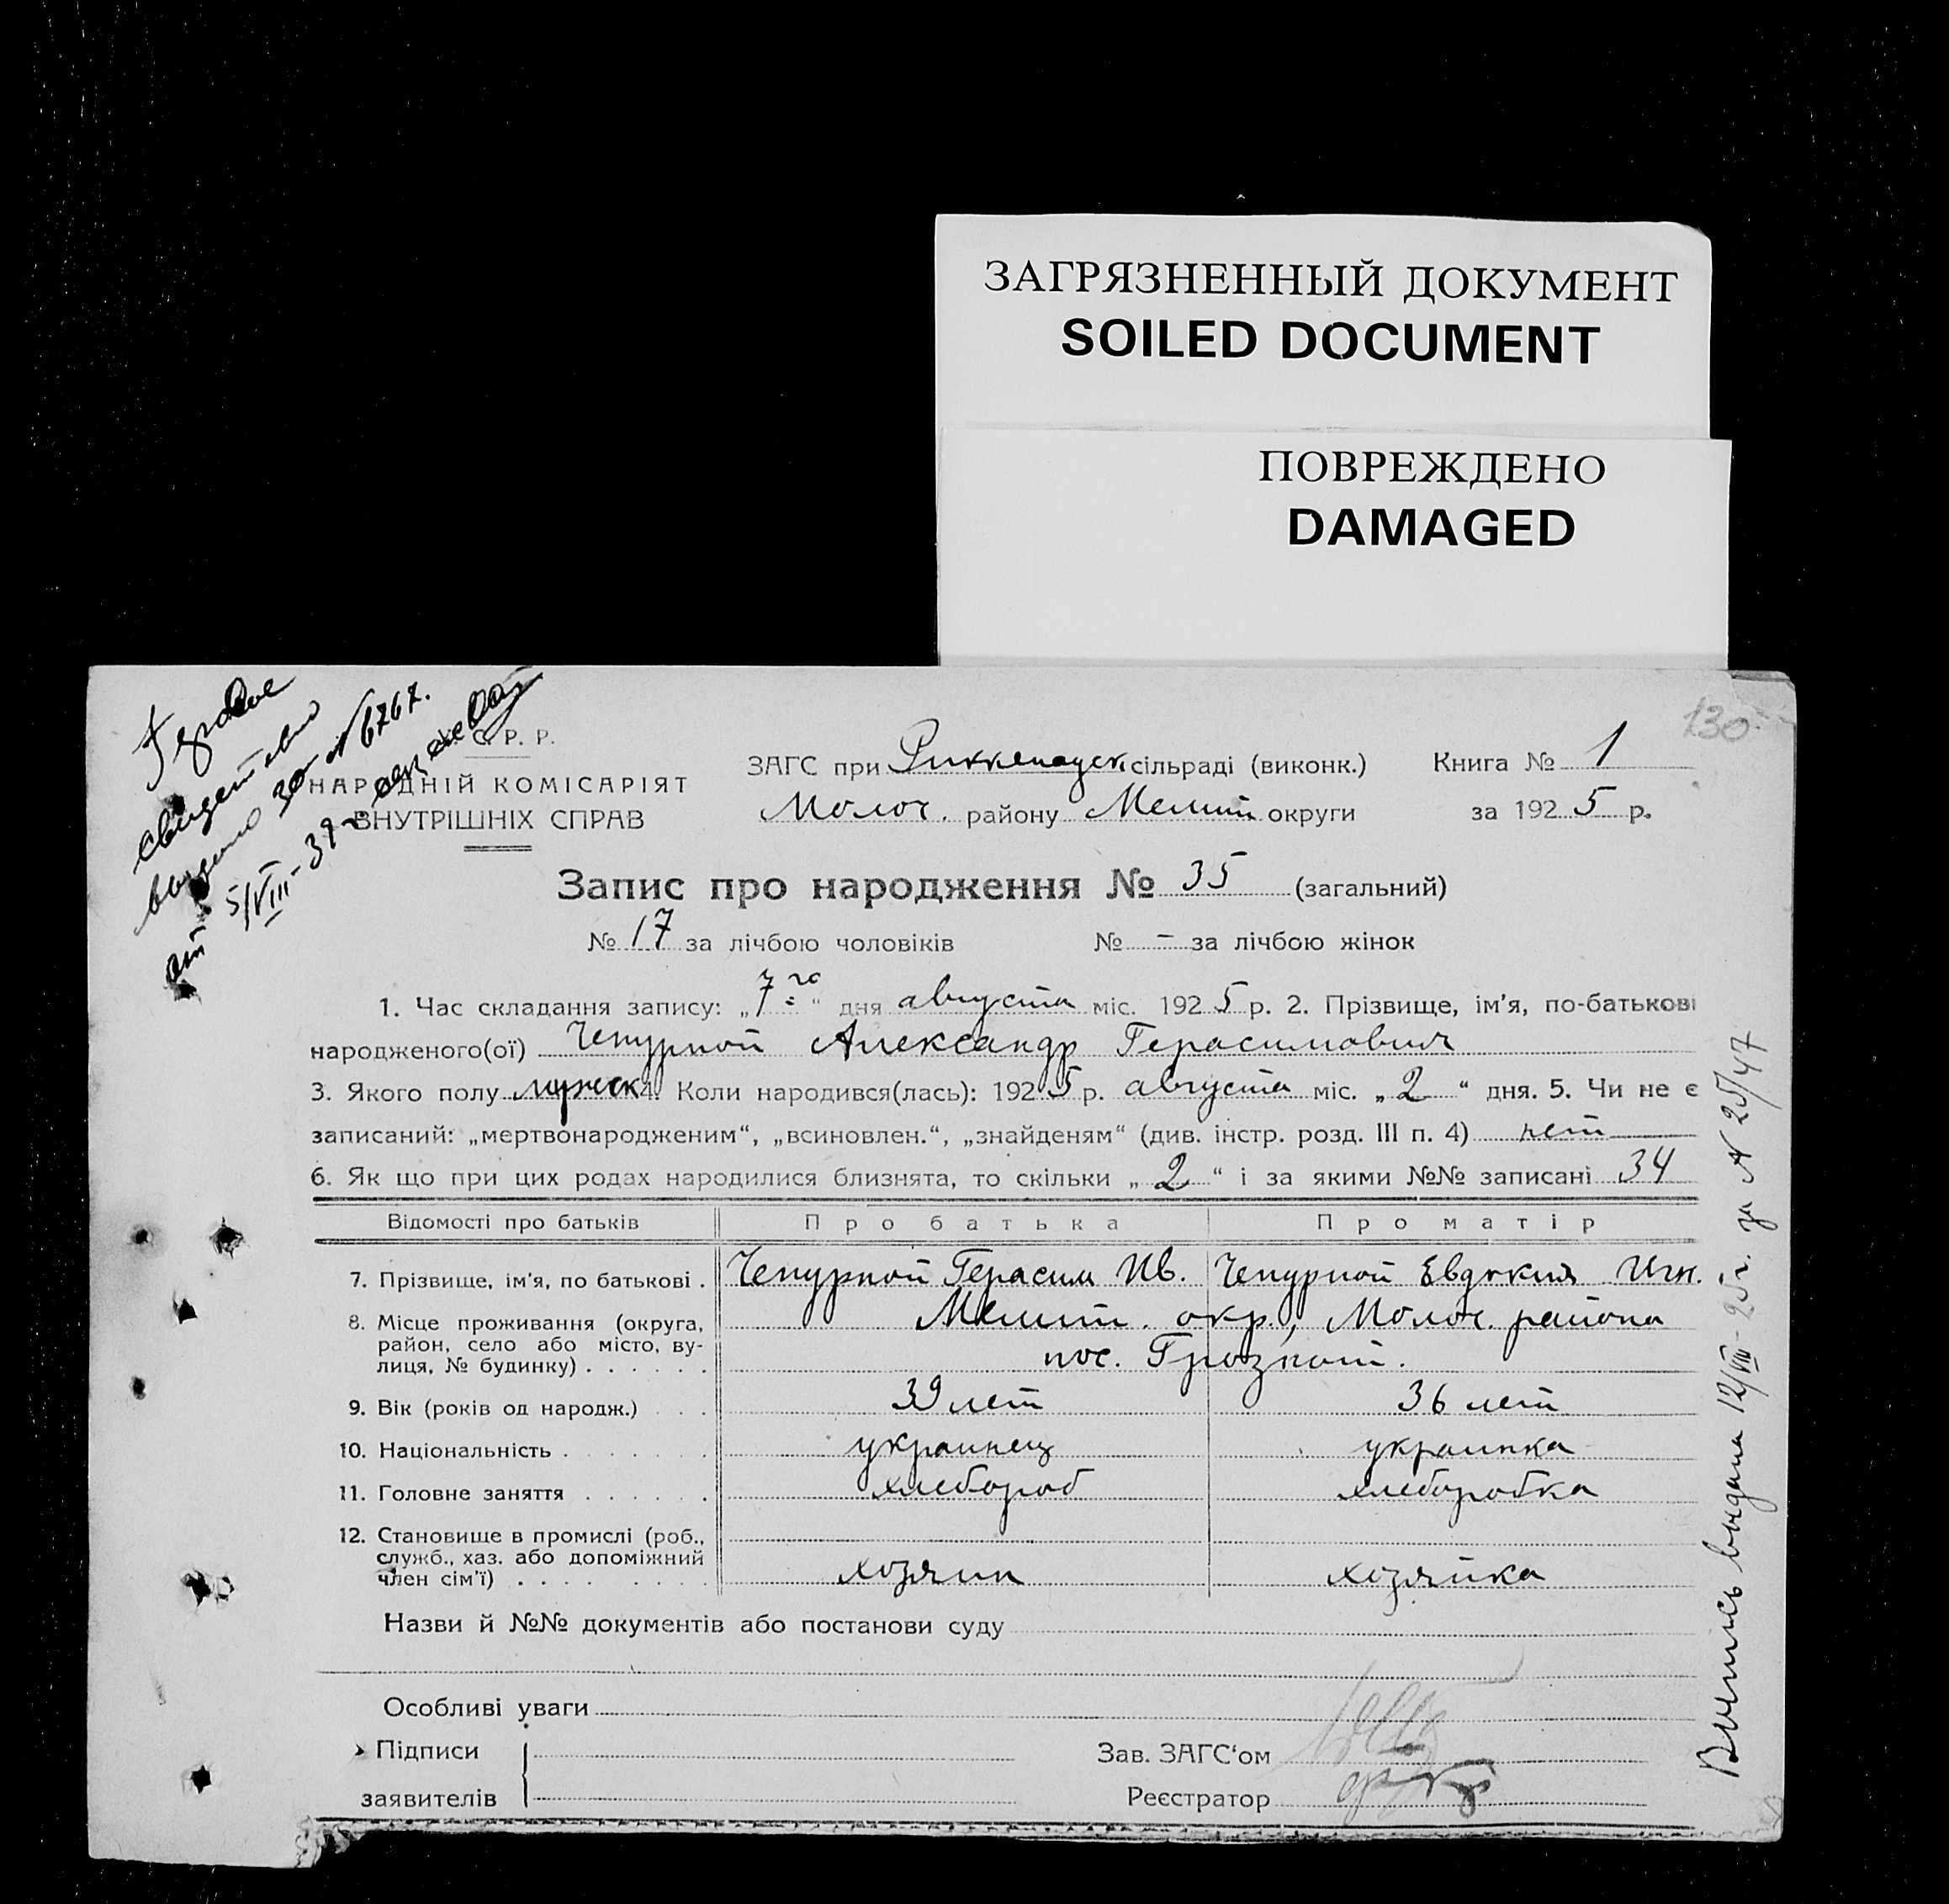 ЗАГРЯЗНЕННЫЙ ДОКУМЕНТ
SOILED DOCUMENT
ПОВРЕЖДЕНО
DAMAGED
130
свидетельство
выдано
от 5/VIII-39
С. Р. Р.
НАРОДНІЙ КОМІСАРІЯТ
ВНУТРІШНІХ СПРАВ
ЗАГС при Риккенауск. сільраді (виконк.) Книга № 1
Молоч. району Мелит. округи за 1925 р.
Запис про народження № 35 (загальний)
№ 17 за лічбою чоловіків № - за лічбою жінок
1. Час складання запису: „7го“ дня августа міс. 1925 р. 2. Прізвище, ім'я, по-батькові
народженого(ої) Чепурной Александр Герасимович
3. Якого полу мужск 4. Коли народився(лась): 1925 р. августа міс. „2“ дня. 5. Чи не є
записаний: „мертвонародженим“, „всиновлен.“, „знайденям“ (див. інстр. розд. III п. 4) нет
6. Як що при цих родах народилися близнята, то скільки „2“ і за якими №№ записані 34
Відомості про батьків Про батька Про матір
7. Прізвище, ім'я, по батькові . Чепурной Герасим Ив. Чепурной Евдокия Игн.
8. Місце проживання (округа, Мелит. окр., Молоч. района
район, село або місто, ву-
лиця, № будинку) . . . . . . пос. Грозном.
9. Вік (років од народж.) . . . 39 лет 36 лет
10. Національність . . . . . . украинец украинка
11. Головне заняття . . . . . . хлебороб хлеборобка
12. Становище в промислі (роб.,
служб., хаз. або допоміжний
член сім'ї) . . . . . . . . . хозяин хозяйка
Назви й №№ документів або постанови суду
Особливі уваги
Підписи
Зав. ЗАГС'ом
заявителів
Реєстратор
Выпись выдана 12/VIII-25 г. за № 25/47